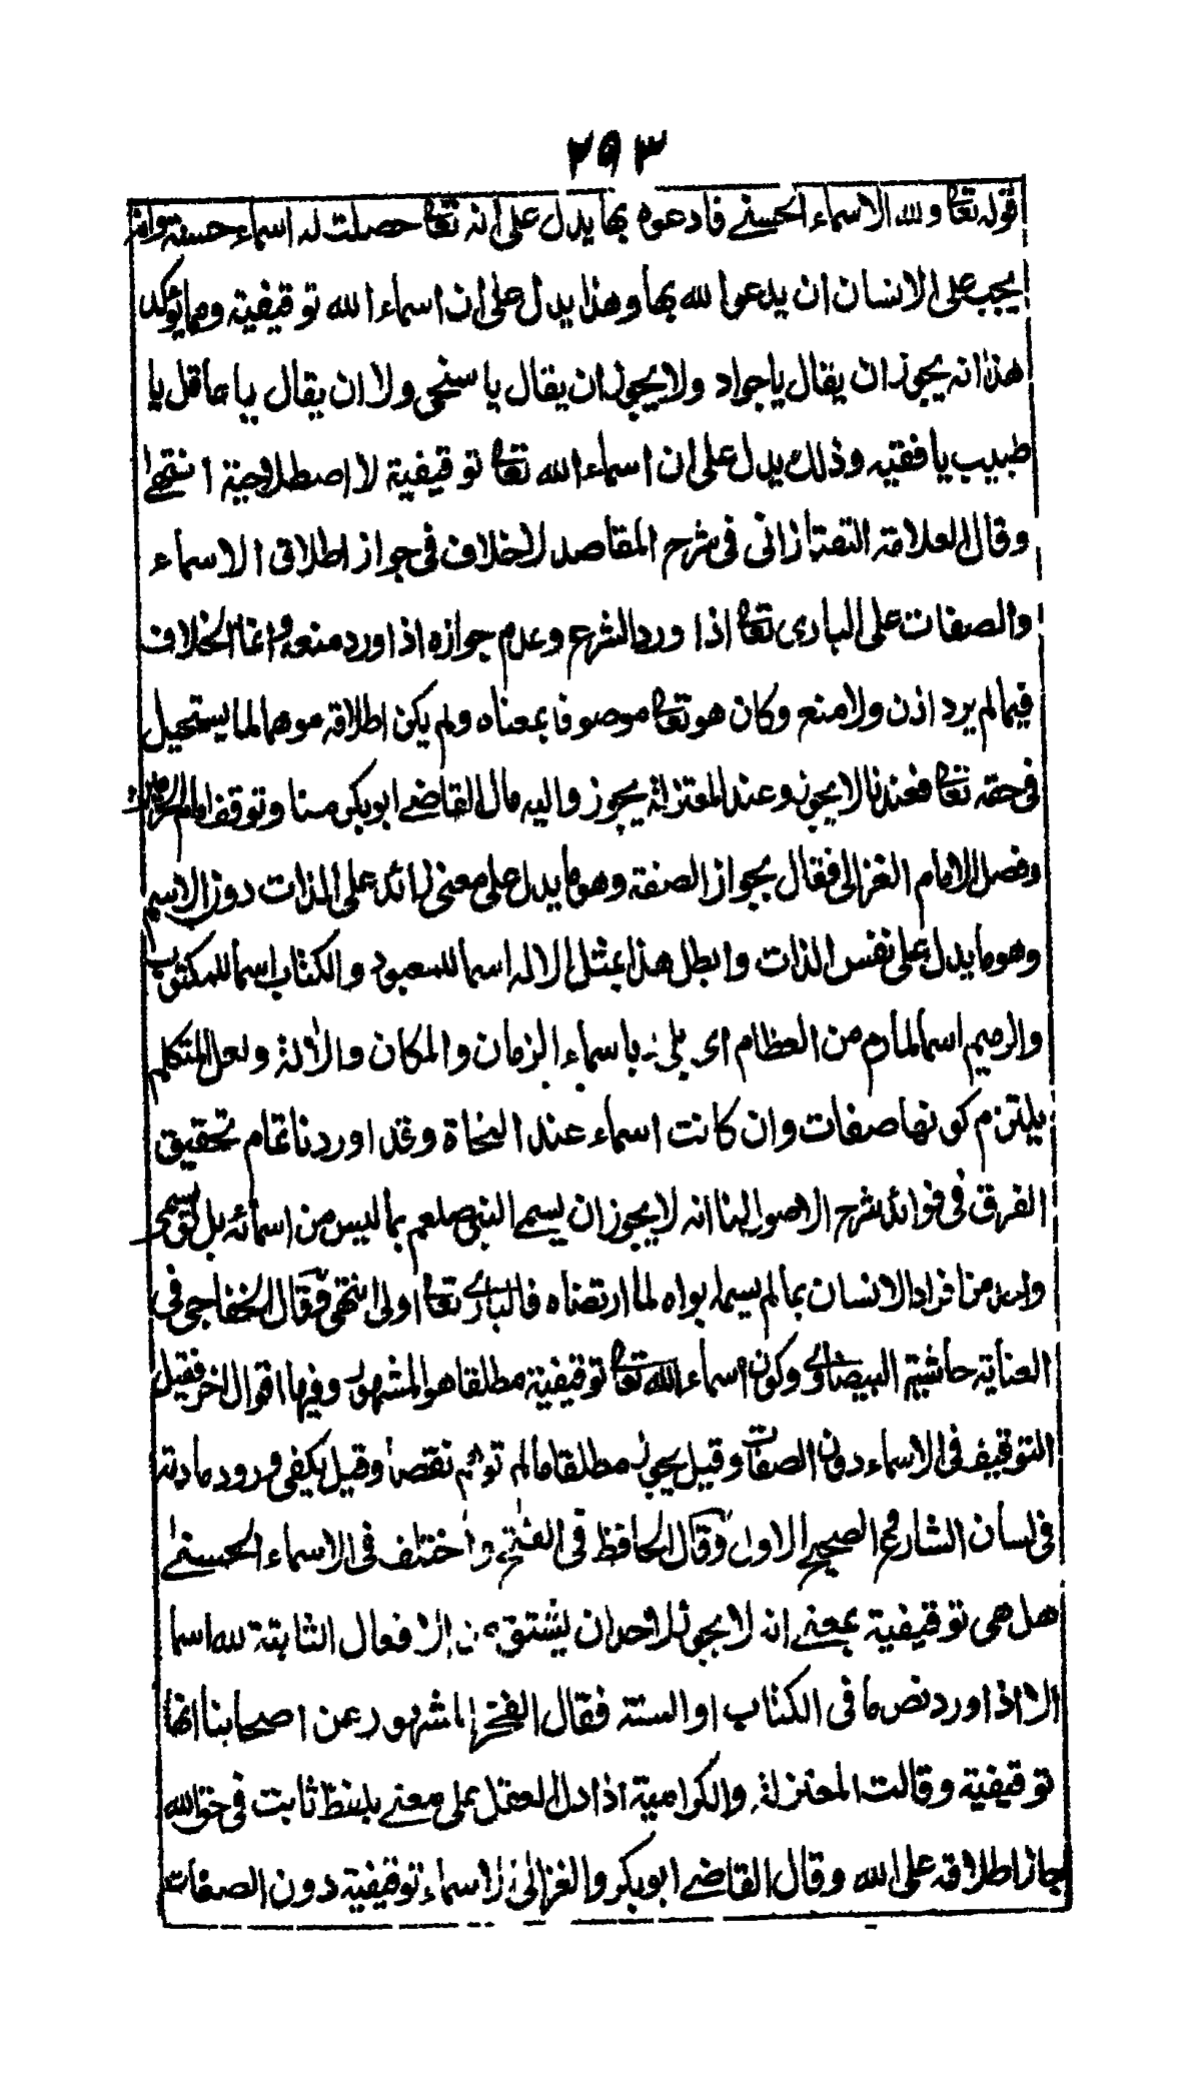 ٢٥٣
قوله تعالى ولله الاسماء الحسنے فادعوه بها يدل على انه تعالى حصلت له اسماء حسنة وانه
يجب على الانسان ان يدعوا لله بها وهذا يدل على ان اسماء الله توقيفية ومما يؤكد
هذا انه يجوز ان يقال يا جواد ولا يجوز ان يقال يا سخى ولا ان يقال يا عاقل يا
طبيب يا فقيه وذلك يدل على ان اسماء الله تعالى توقيفية لا اصطلاحية انتهى
وقال العلامة التفتازانى فى شرح المقاصد لا خلاف فى جواز اطلاق الاسماء
والصفات على البارى تعالى اذا ورد الشرع وعدم جوازه اذا ورد منعه وانما الخلاف
فيما لم يرد اذن ولا منع وكان هو تعالى موصوفا بمعناه ولم يكن اطلاقه موهما لما يستحيل
فى حقه تعالى فعندنا لا يجوز وعند المعتزلة يجوز واليه مال القاضے ابو بكر منا وتوقف امام الحرمين
وفصل الامام الغزالى فقال بجواز الصفة وهو ما يدل على معنى زائد على الذات دون الاسم
وهو ما يدل على نفس الذات وابطل هذا بمثل الاله اسما للمعبود والكتاب اسما للمكتوب
والرميم اسما لما رم من العظام اى بلى بـ باسماء الزمان والمكان والالة ولعل المتكلم
يلتزم كونها صفات وان كانت اسماء عند النحاة وقد اوردنا تمام تحقيق
الفرق فى فوائد شرح الاصول لنا انه لا يجوز ان يسمے النبى صلعم بما ليس من اسمائه بل لو سمى
واحد من افراد الانسان بما لم يسمه بواه لما ارتضاه فالبارے تعالى اولى انتهى وقال الخفاجى فى
العناية حاشية البيضاوے وكون اسماء الله تعالى توقيفية مطلقا هو المشهور وفيها اقوال اخر فقيل
التوقيف فى الاسماء دون الصفات وقيل يجوز مطلقا ما لم توهم نقصا وقيل يكفى ورود مادته
فى لسان الشارع والصحيح الاول وقال الحافظ فى الفتح واختلف فى الاسماء الحسنے
هل هى توقيفية بمعنے انه لا يجوز لاحد ان يشتق من الافعال الثابتة لله اسما
الا اذا ورد نص ما فى الكتاب او السنة فقال الفخر المشهور عن اصحابنا انها
توقيفية وقالت المعتزلة والكرامية اذا دل العقل على معنے بلفظ ثابت فى حق الله
جاز اطلاقه على الله وقال القاضے ابو بكر والغزالى الاسماء توقيفية دون الصفات